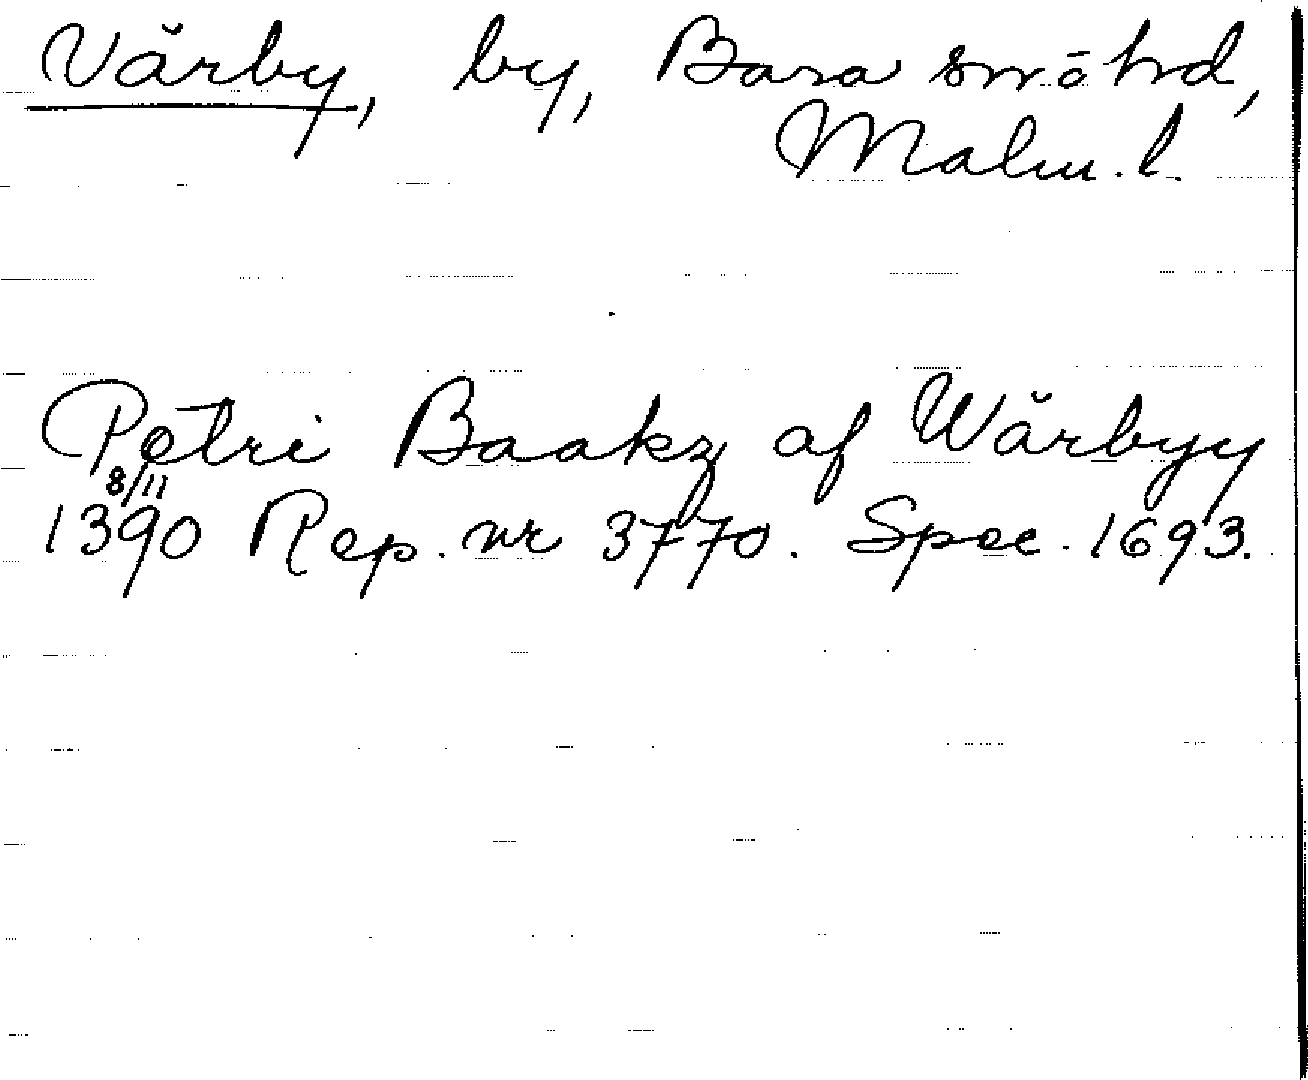 Värby, by, Bara sn o hrd,
Malm. l.
Petri Baakz af Wärbyy
8/11
1390 Rep. nr 3770. Spec. 1693.